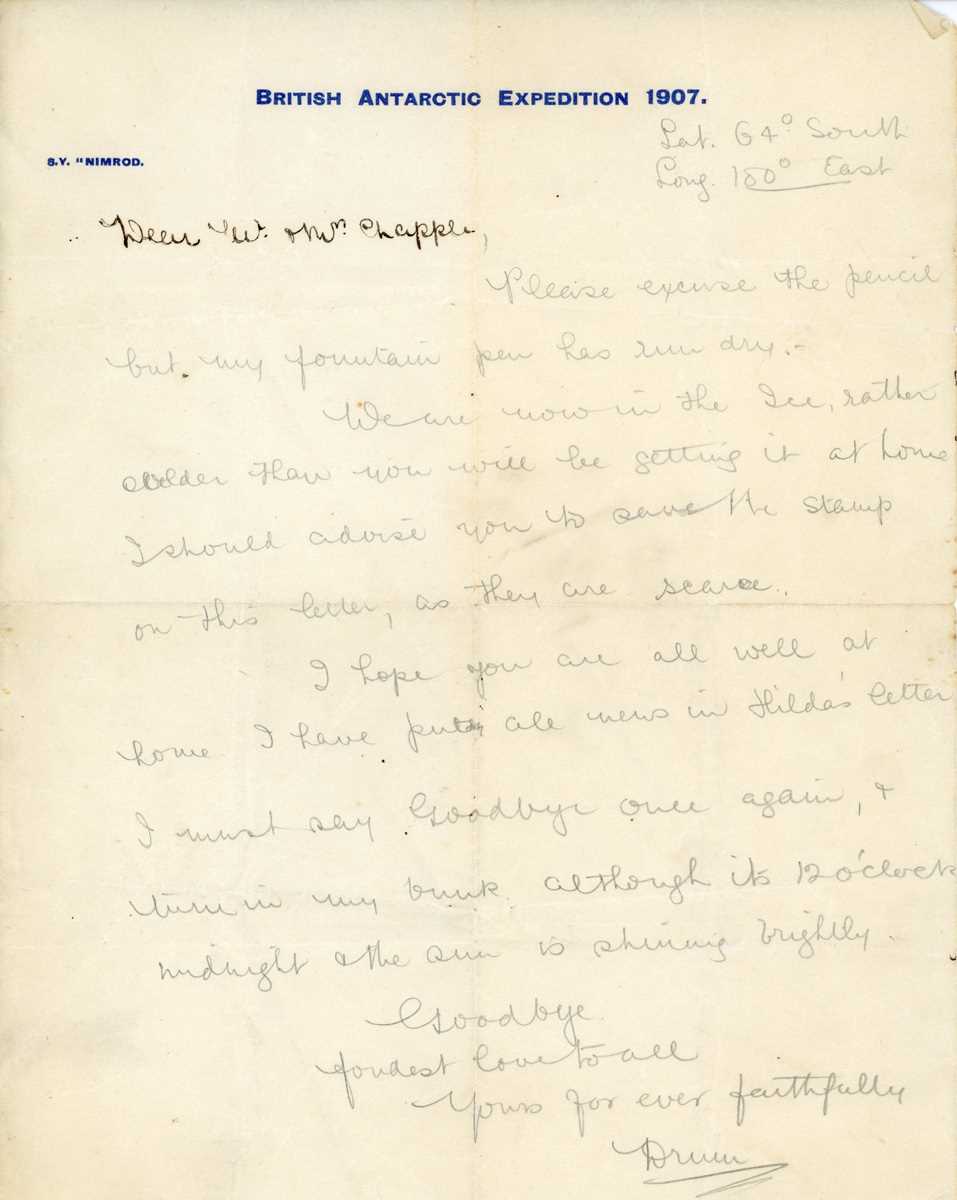 BRITISH ANTARCTIC EXPEDITION 1907.
Lat. 64° South
S.Y. "NIMROD.
Long. 180° East
Dear Mr. & Mrs Chapple,
Please excuse the pencil
but my fountain pen has run dry.-
We are now in the Ice, rather
colder than you will be getting it at home
I should advise you to save the stamp
on this letter, as they are scarce.
I hope you are all well at
home I have put all news in Hilda's letter
I must say Goodbye once again, &
turn in my bunk although its 12 o'clock
midnight & the sun is shining brightly.
Goodbye
fondest love to all
Yours for ever faithfully